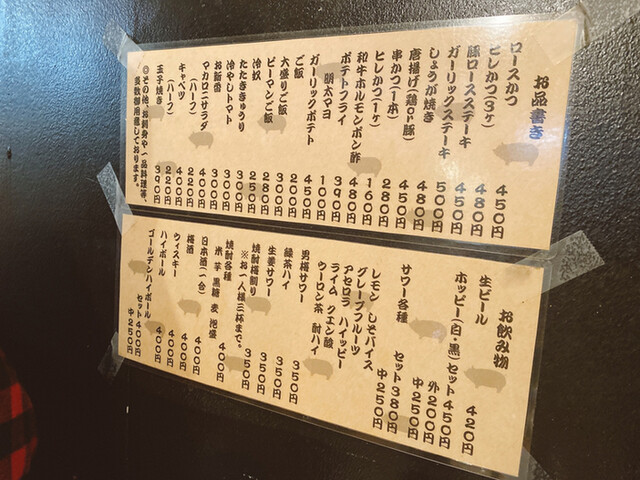 お品書き
ロースかつ 450円
ヒレかつ(3ヶ) 480円
豚ロースステーキ 450円
ガーリックステーキ 500円
しょうが焼き 480円
唐揚げ(鶏or豚) 450円
串かつ(1本) 280円
ヒレかつ(1ヶ) 160円
和牛ホルモンポン酢 480円
ポテトフライ 390円
明太マヨ 100円
ガーリックポテト 450円
ご飯 200円
大盛りご飯 300円
ピーマンご飯 280円
冷奴 250円
たたききゅうり 300円
冷やしトマト 300円
お新香 300円
マカロニサラダ 400円
(ハーフ) 220円
キャベツ 400円
(ハーフ) 220円
玉子焼き 390円
◎その他、お刺身や一品料理等、
多数御用意しております。
お飲み物
生ビール 420円
ホッピー(白・黒)セット 450円
外 200円
中 250円
サワー各種 セット 380円
中 250円
レモン しそバイス
グレープフルーツ
アセロラ ハイッピー
ライム クエン酸
ウーロン茶 酎ハイ
男梅サワー 350円
緑茶ハイ 350円
生姜サワー 350円
焼酎梅割り 350円
※お一人様三杯まで。
焼酎各種 400円
米 芋 黒糖 麦 泡盛
日本酒(一合) 400円
梅酒 400円
ウィスキー 400円
ハイボール 400円
ゴールデンハイボール セット 400円
中 250円